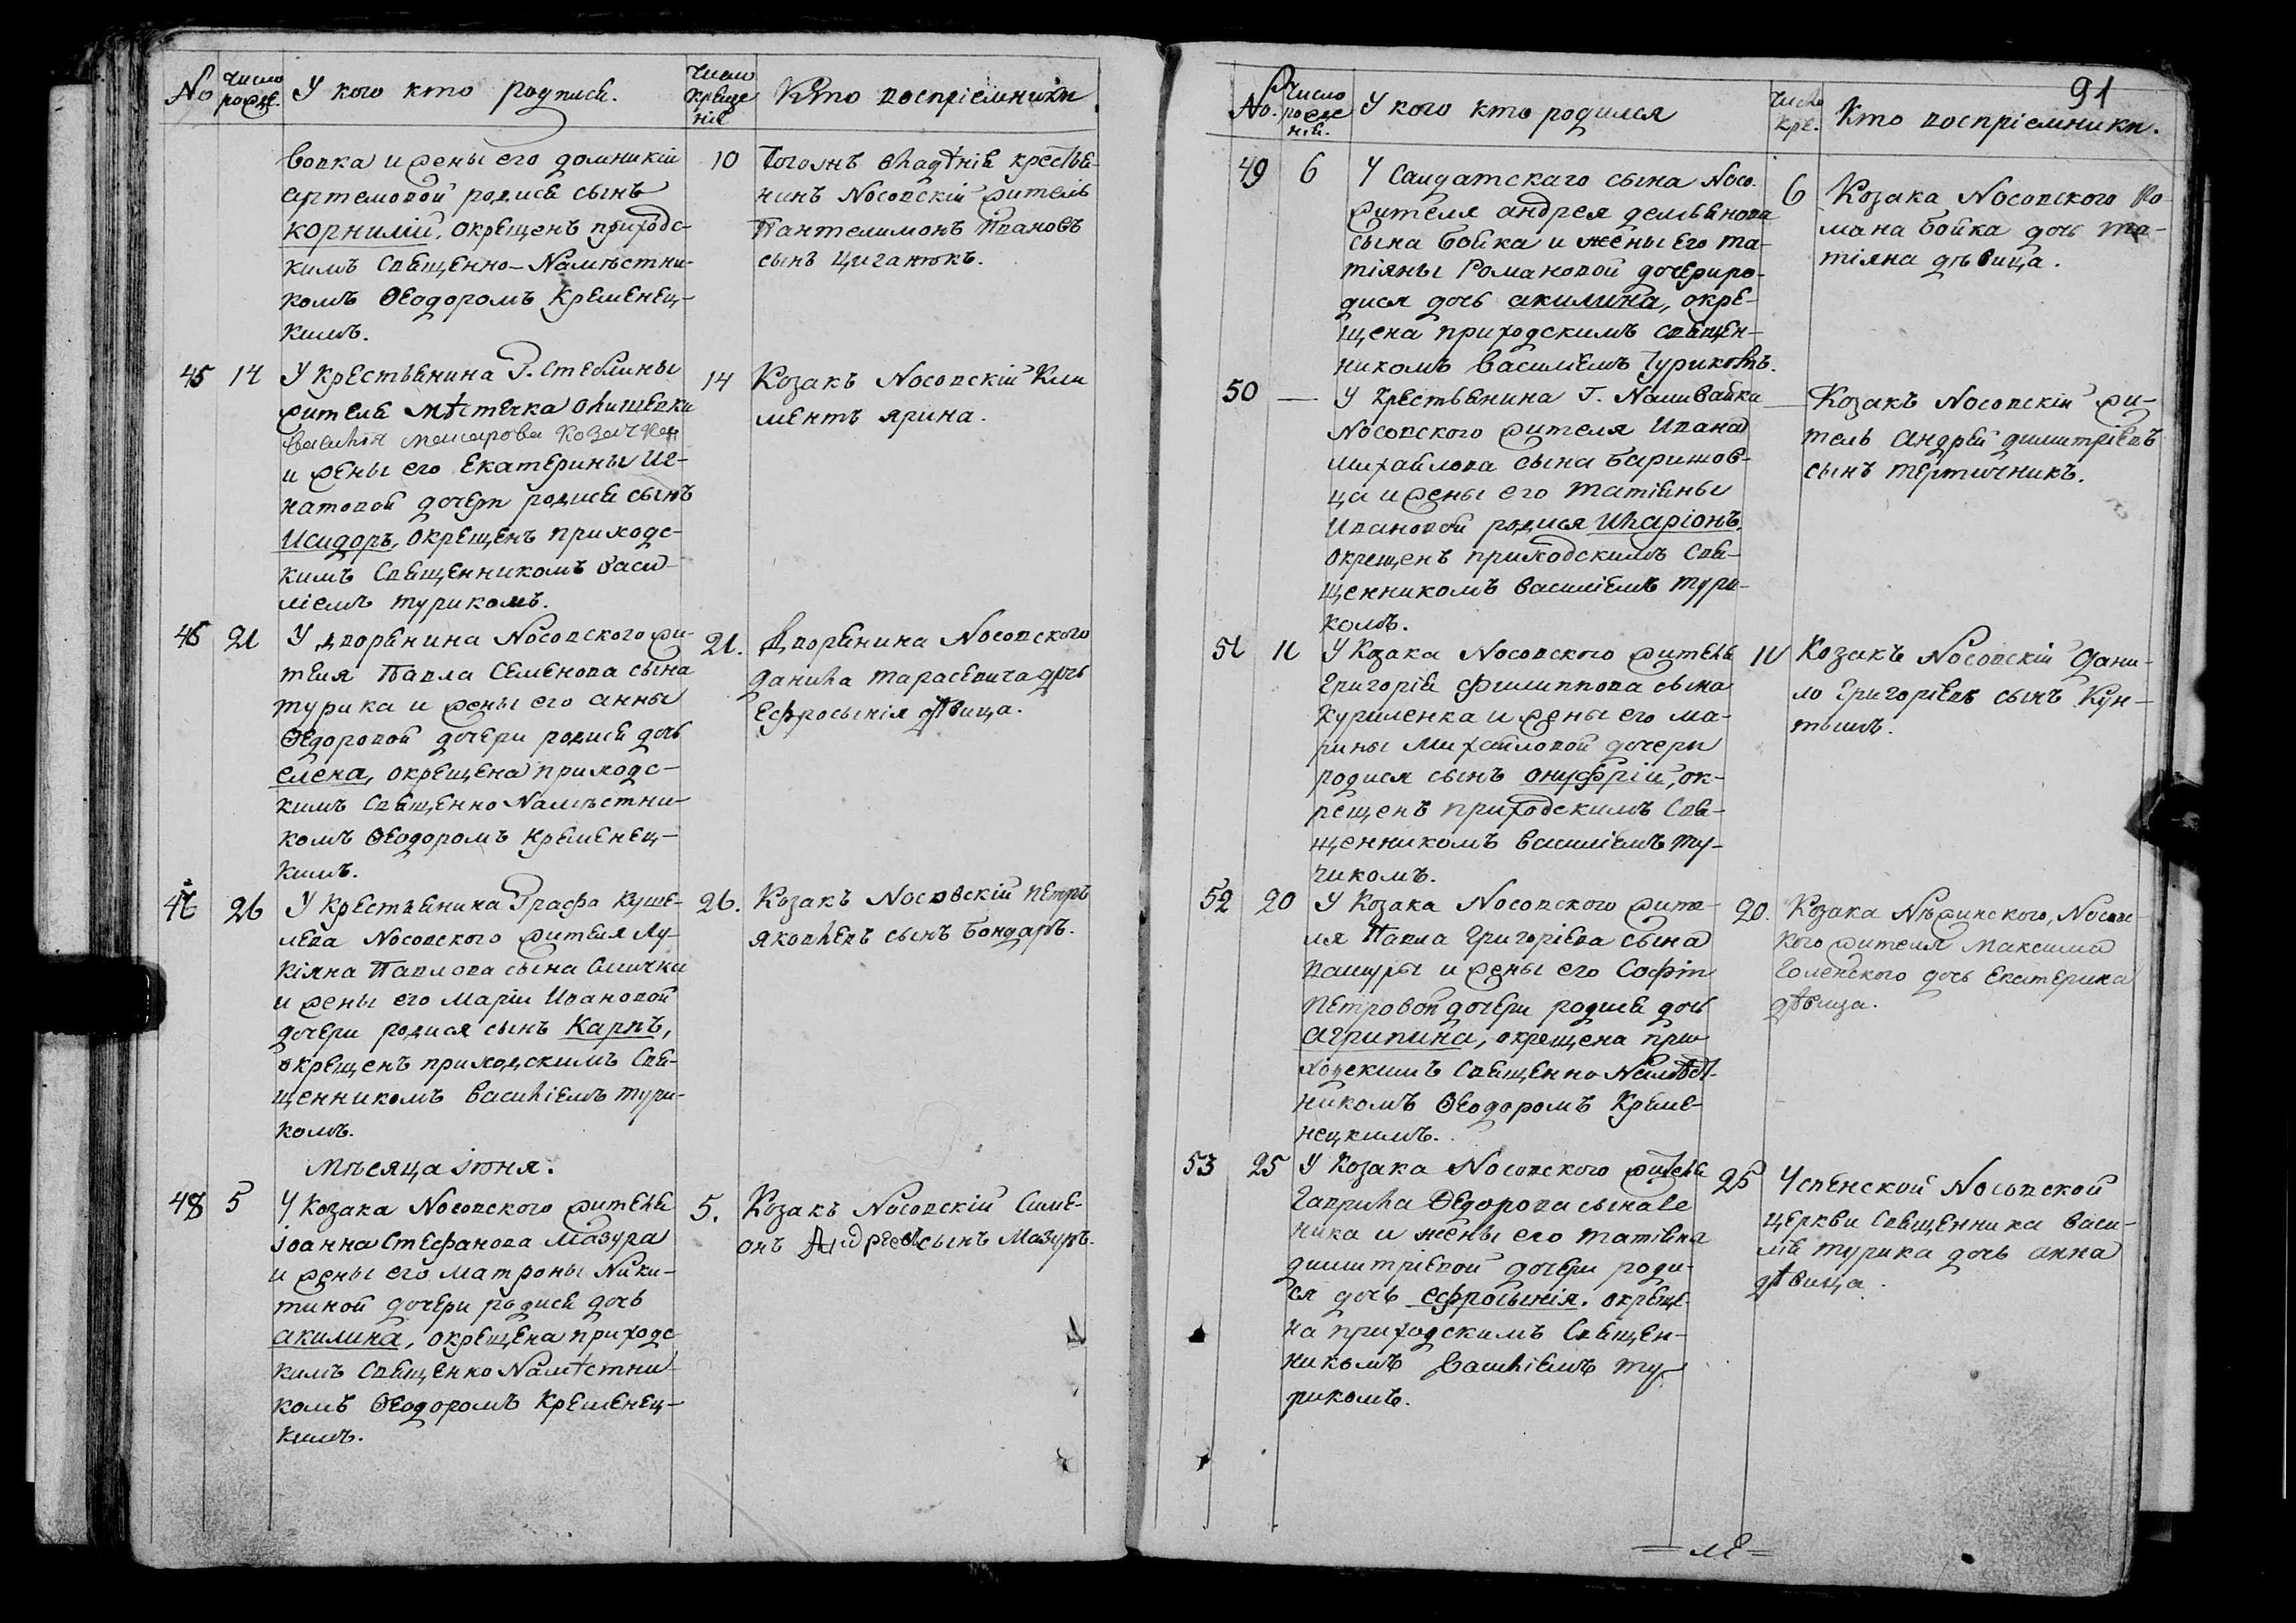 No
число рожде.
У кого кто родился.
Число креще нія
Кто воспріемники.
вовка и жены его домникіи
артемовой родися сынъ
корнилій, окрещенъ приходс-
кимъ Священно-Намѣстни-
комъ Ѳеодоромъ Кременец-
кимъ.
10
Тогожъ владѣнія крестья-
нинъ Носовскій житель
Пантелимонъ Ивановъ
сынъ Циганюкъ.
45 14
У Крестьянина Г. Стеблины
жителя мѣстечка олишевки
и жены его Екатерины Иг-
натовой дочери родися сынъ
Исидоръ, окрещенъ приходс-
кимъ Священникомъ Васи-
ліемъ турикомъ.
14
Козакъ Носовскій Кли
ментъ ярина.
46 21
У дворянина Носовского жи-
теля Павла Семенова сына
турика и жены его анны
Ѳедоровой дочери родися дочь
елена, окрещена приходс-
кимъ Священно Намѣстни-
комъ Ѳеодоромъ Кременец-
кимъ.
21.
Дворянина Носовского
данила тарасевича дочь
Ефросынія дѣвица.
47 26
У Крестьянина Графа Куше-
лева Носовского жителя Лу-
кіяна Павлова сына Смички
и жены его Маріи Ивановой
дочери родися сынъ Карпъ,
окрещенъ приходскимъ Свя-
щенникомъ Василіемъ тури-
комъ.
26.
Козакъ Носовскій Петръ
яковлевъ сынъ Бондарь.
Мѣсяца іюня.
48 5
У Козака Носовского жителя
Іоанна Стефанова Мазура
и жены его матроны Ники-
тиной дочери родися дочь
акилина, окрещена приходс
кимъ Священно Намѣстни
комъ Ѳеодоромъ Кременец-
кимъ.
5.
Козакъ Носовскій Симе-
онъ Андреевъ сынъ Мазуръ.
91
No.
Число рожде нія.
У кого кто родился
Число кре.
Кто воспріемники.
49 6
У Салдатскаго сына Носо.
жителя андрея демьянова
сына бойка и жены его та-
тіяны Романовой дочери ро-
дися дочь акилина, окре-
щена приходскимъ священ-
никомъ Василіемъ Турикомъ.
6
Козака Носовского Ро-
мана бойка дочь та-
тіяна дѣвица.
50 —
У Крестьянина Г. Наливайка
Носовского жителя Ивана
михайлова сына баришов-
ца и жены его татіяны
Ивановой родися Иларіонъ,
окрещенъ приходскимъ Свя-
щенникомъ Василіемъ тури-
комъ.
—
Козакъ Носовскій жи-
тель андрей димитріевъ
сынъ тертичникъ.
51 11
У Козака Носовского жителя
григорія филиппова сына
Куриленка и жены его ма-
рины Михайловой дочери
родися сынъ онуфрій, ок-
рещенъ приходскимъ Свя-
щенникомъ Василіемъ ту-
рикомъ.
11
Козакъ Носовскій дани-
ло григоріевъ сынъ Кун-
тышъ.
52 20
У Козака Носовского жите-
ля Павла григоріева сына
Пашуры и жены его Софіи
Петровой дочери родися дочь
агрипина, окрещена при-
ходскимъ Священно Намѣст-
никомъ Ѳеодоромъ Креме-
нецкимъ.
20.
Козака Нѣжинского, Носовс-
кого жителя Максима
Голенского дочь Екатерина
дѣвица.
53 25
У Козака Носовского жителя
гаврила Ѳедорова сына ле
ника и жены его татіяны
димитріевой дочери роди-
ся дочь Ефросынія. окреще-
на приходскимъ Священ-
никомъ Василіемъ ту-
рикомъ.
25
Успенской Носовской
церкви Священника Васи-
лія турика дочь анна
дѣвица.